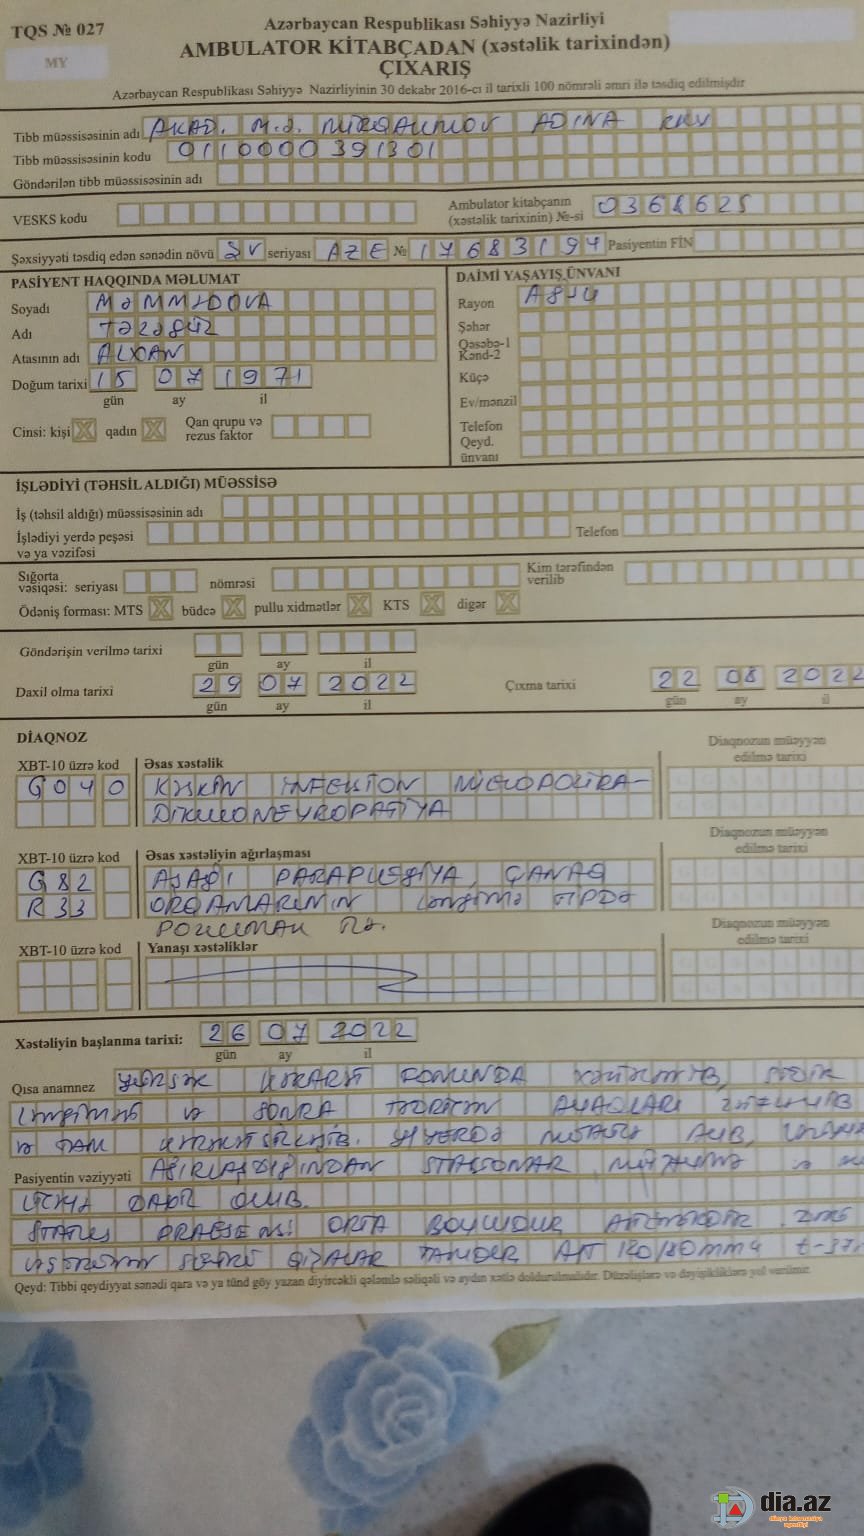 TQS № 027
Azərbaycan Respublikası Səhiyyə Nazirliyi
MY
AMBULATOR KİTABÇADAN (xəstəlik tarixindən)
ÇIXARIŞ
Azərbaycan Respublikası Səhiyyə Nazirliyinin 30 dekabr 2016-cı il tarixli 100 nömrəli əmri ilə təsdiq edilmişdir
Tibb müəssisəsinin adı AKAD. M.Ə. MİRQASIMOV ADINA RKX
Tibb müəssisəsinin kodu 0110000391301
Göndərilən tibb müəssisəsinin adı
VESKS kodu
Ambulator kitabçanın (xəstəlik tarixinin) №-si 0368625
Şəxsiyyəti təsdiq edən sənədin növü ŞV seriyası AZE № 17683194 Pasiyentin FİN
PASİYENT HAQQINDA MƏLUMAT
Soyadı MƏMMƏDOVA
Adı TƏZƏGÜL
Atasının adı ALXAN
Doğum tarixi 15 07 1971
gün ay il
Cinsi: kişi qadın Qan qrupu və rezus faktor
DAİMİ YAŞAYIŞ ÜNVANI
Rayon AĞSU
Şəhər
Qəsəbə-1
Kənd-2
Küçə
Ev/mənzil
Telefon
Qeyd.
ünvanı
İŞLƏDİYİ (TƏHSİL ALDIĞI) MÜƏSSİSƏ
İş (təhsil aldığı) müəssisəsinin adı
İşlədiyi yerdə peşəsi və ya vəzifəsi
Telefon
Sığorta vəsiqəsi: seriyası nömrəsi
Kim tərəfindən verilib
Ödəniş forması: MTS büdcə pullu xidmətlər KTS digər
Göndərişin verilmə tarixi
gün ay il
Daxil olma tarixi 29 07 2022
gün ay il
Çıxma tarixi 22 08 2022
gün ay il
DİAQNOZ
XBT-10 üzrə kod Əsas xəstəlik
Diaqnozun müəyyən edilmə tarixi
G040 KƏSKİN İNFEKSİON MİELOPOLİRA-
DİKULONEYROPATİYA
XBT-10 üzrə kod Əsas xəstəliyin ağırlaşması
Diaqnozun müəyyən edilmə tarixi
G82 AŞAĞI PARAPLEGİYA, ÇANAQ
R33 ORQANLARININ LƏNGİMƏ TİPDƏ
POZULMASI
XBT-10 üzrə kod Yanaşı xəstəliklər
Diaqnozun müəyyən edilmə tarixi
Xəstəliyin başlanma tarixi: 26 07 2022
gün ay il
Qısa anamnez YÜKSƏK HƏRARƏT FONUNDA XƏSTƏLƏNİB, SİDİK
LƏNGİMƏSİ VƏ SONRA TƏDRİCƏN AYAQLARI ZƏİFLƏYİB
VƏ TAM HƏRƏKƏTSİZLƏŞİB. YERDƏ MÜALİCƏ ALIB,
Pasiyentin vəziyyəti AĞIRLAŞDIĞINDAN STASİONAR MÜAYİNƏ VƏ
ÜÇÜN DAXİL OLUB.
STATUS PRAESENS: ORTA BOYLUDUR
QIZALAR TƏMİZDİR A/T 120/80 MM
Qeyd: Tibbi qeydiyyat sənədi qara və ya tünd göy yazan diyircəkli qələmlə səliqəli və aydın xətlə doldurulmalıdır. Düzəlişlərə və dəyişikliklərə yol verilmir.
dia.az
dünya informasiya agentliyi